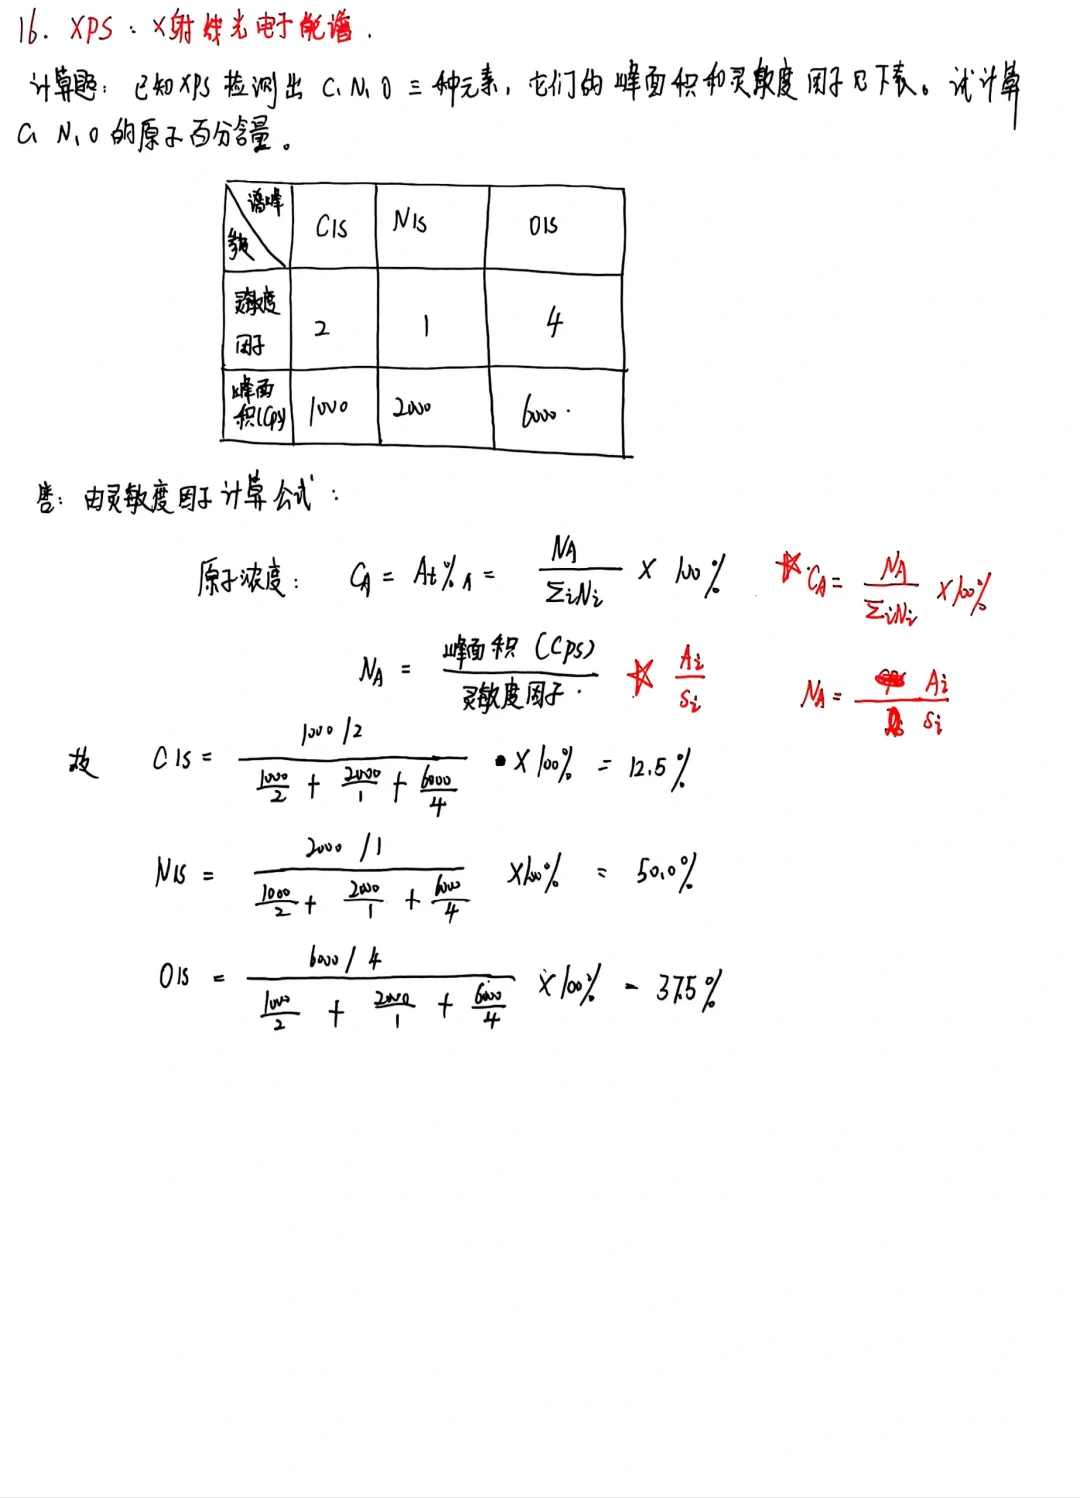 16. XPS：X射线光电子能谱.
计算题：已知XPS检测出 C、N、O 三种元素，它们的峰面积和灵敏度因子见下表。试计算
C、N、O的原子百分含量。
谱峰
参数
C1S N1S O1S
灵敏度因子 2 1 4
峰面积(Cps) 1000 2000 6000
答：由灵敏度因子计算公式：
原子浓度： C_A = At%_A = N_A / Σ_i N_i × 100% ☆ C_A = N_A / Σ_i N_i × 100%
N_A = 峰面积 (Cps) / 灵敏度因子 ☆ A_i / S_i N_A = A_i / S_i
故 C1S = (1000/2) / (1000/2 + 2000/1 + 6000/4) × 100% = 12.5%
N1S = (2000/1) / (1000/2 + 2000/1 + 6000/4) × 100% = 50.0%
O1S = (6000/4) / (1000/2 + 2000/1 + 6000/4) × 100% = 37.5%